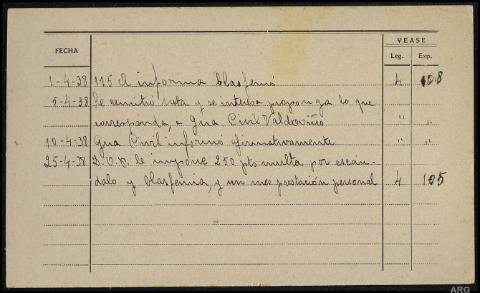 VEASE
FECHA Leg. Exp.
1-4-38 115 El informa blasfemó 4 108
5-4-38 Se remitió nota y se interesa proponga lo que
corresponda, a Gua Civil Valdoviño " "
10-4-38 Gua Civil informo afirmativamente " "
25-4-38 D.O.P. le impone 250 pts multa por escán-
dalo y blasfemia, y un mes prestación personal 4 105
ARG